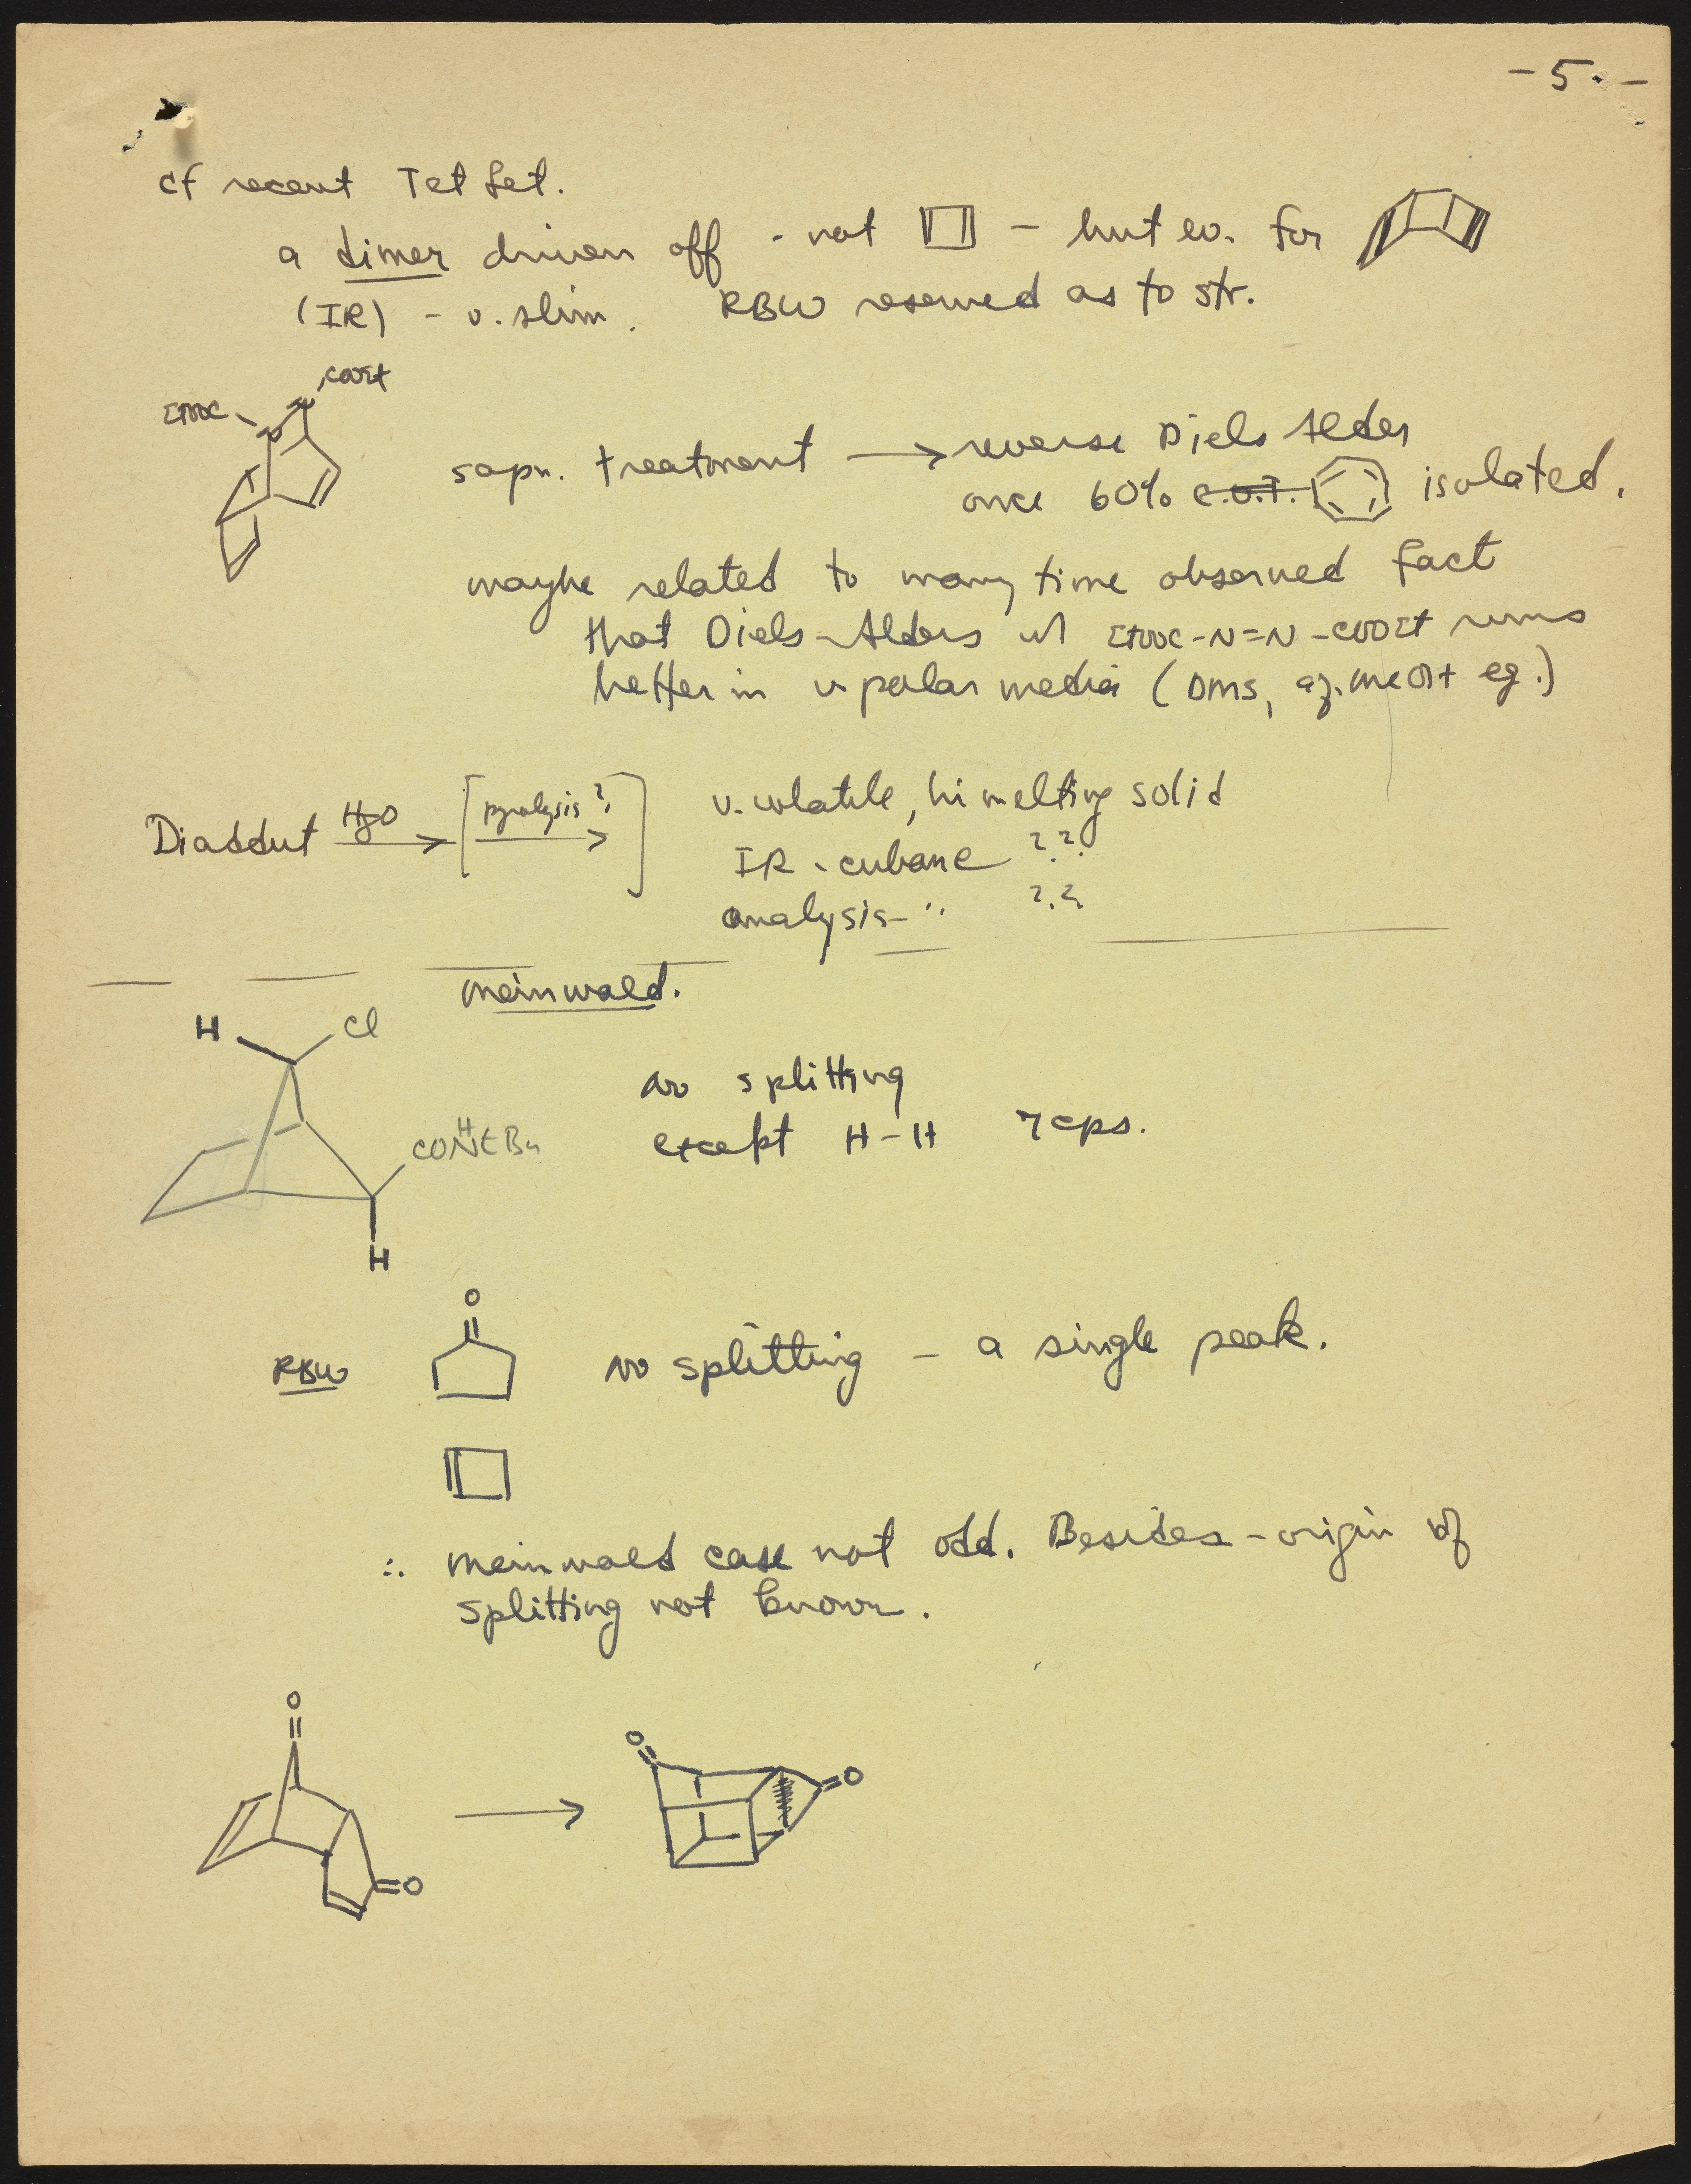 - 5. -
cf recent Tet Let.
a dimer driven off - not - but ev. for
(IR) - v. slim. RBW reserved as to str.
COOEt
EtOOC
N
N
sapn. treatment → reverse Diels Alder
once 60% C.O.T. isolated.
maybe related to many time observed fact
that Diels-Alders w/ EtOOC-N=N-COOEt runs
better in v polar media (DMS, aq. MeOH eg.)
Diadduct H2O → [pyrolysis? →] v. volatile, hi melting solid
IR - cubane ??
analysis - " ??
Meinwald.
H Cl
no splitting
except H-H 7cps.
CONHtBu
H
O
RBW no splitting - a single peak.
∴ Meinwald case not odd. Besides - origin of
splitting not known.
O
→
O
O
O